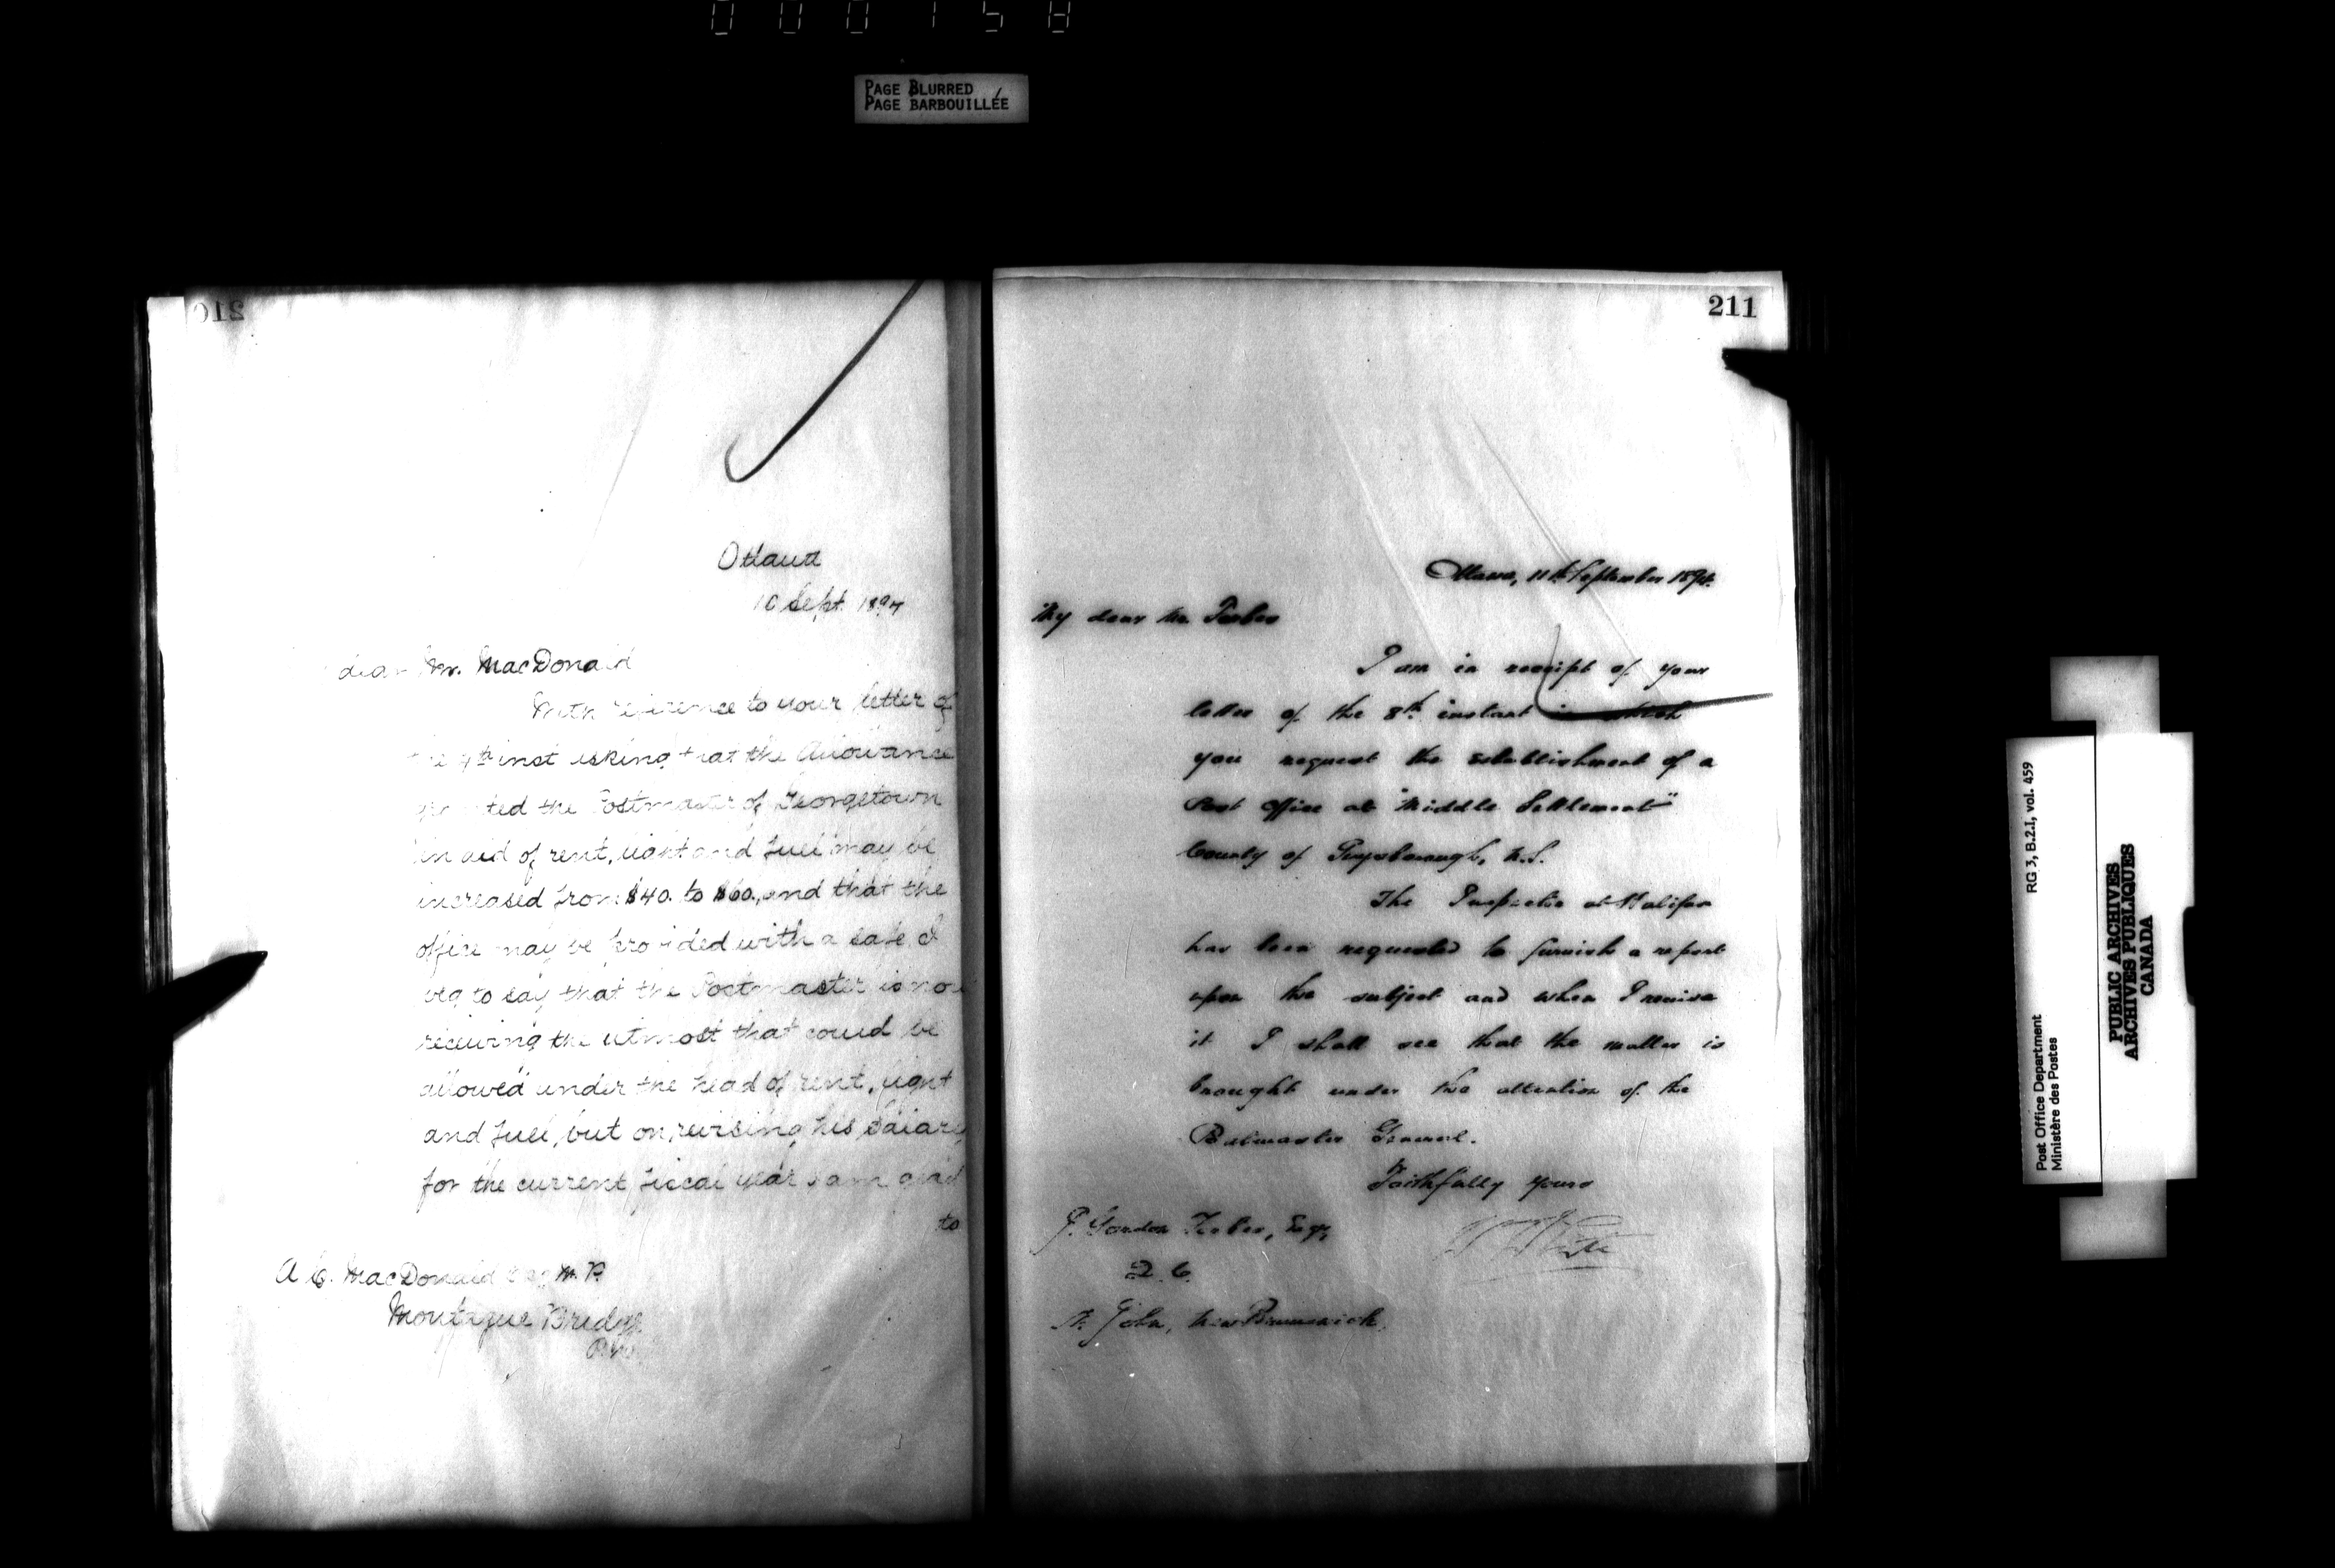 000158
PAGE BLURRED
PAGE BARBOUILLÉE
210
Ottawa
10 Sept. 1894
dear Mr. MacDonald
With reference to your letter of
the 4th inst asking that the allowance
granted the Postmaster of Georgetown
in aid of rent, light and fuel may be
increased from $40. to $60., and that the
office may be provided with a safe I
beg to say that the Postmaster is now
receiving the utmost that could be
allowed under the head of rent, light
and fuel, but on revising his salary
for the current fiscal year I am glad
to
A. C. MacDonald Esq M.P.
Montague Bridge
211
Ottawa, 11th September 1894.
My dear Mr. Forbes
I am in receipt of your
letter of the 8th instant in which
you request the establishment of a
Post Office at "Middle Settlement"
County of Guysborough, N.S.
The Inspector at Halifax
has been requested to furnish a report
upon the subject and when I receive
it I shall see that the matter is
brought under the attention of the
Postmaster General.
Faithfully yours
J. Gordon Forbes, Esq,
Q. C.
St. John, New Brunswick.
RG 3, B.2.I, vol. 459
Post Office Department
Ministère des Postes
PUBLIC ARCHIVES
ARCHIVES PUBLIQUES
CANADA